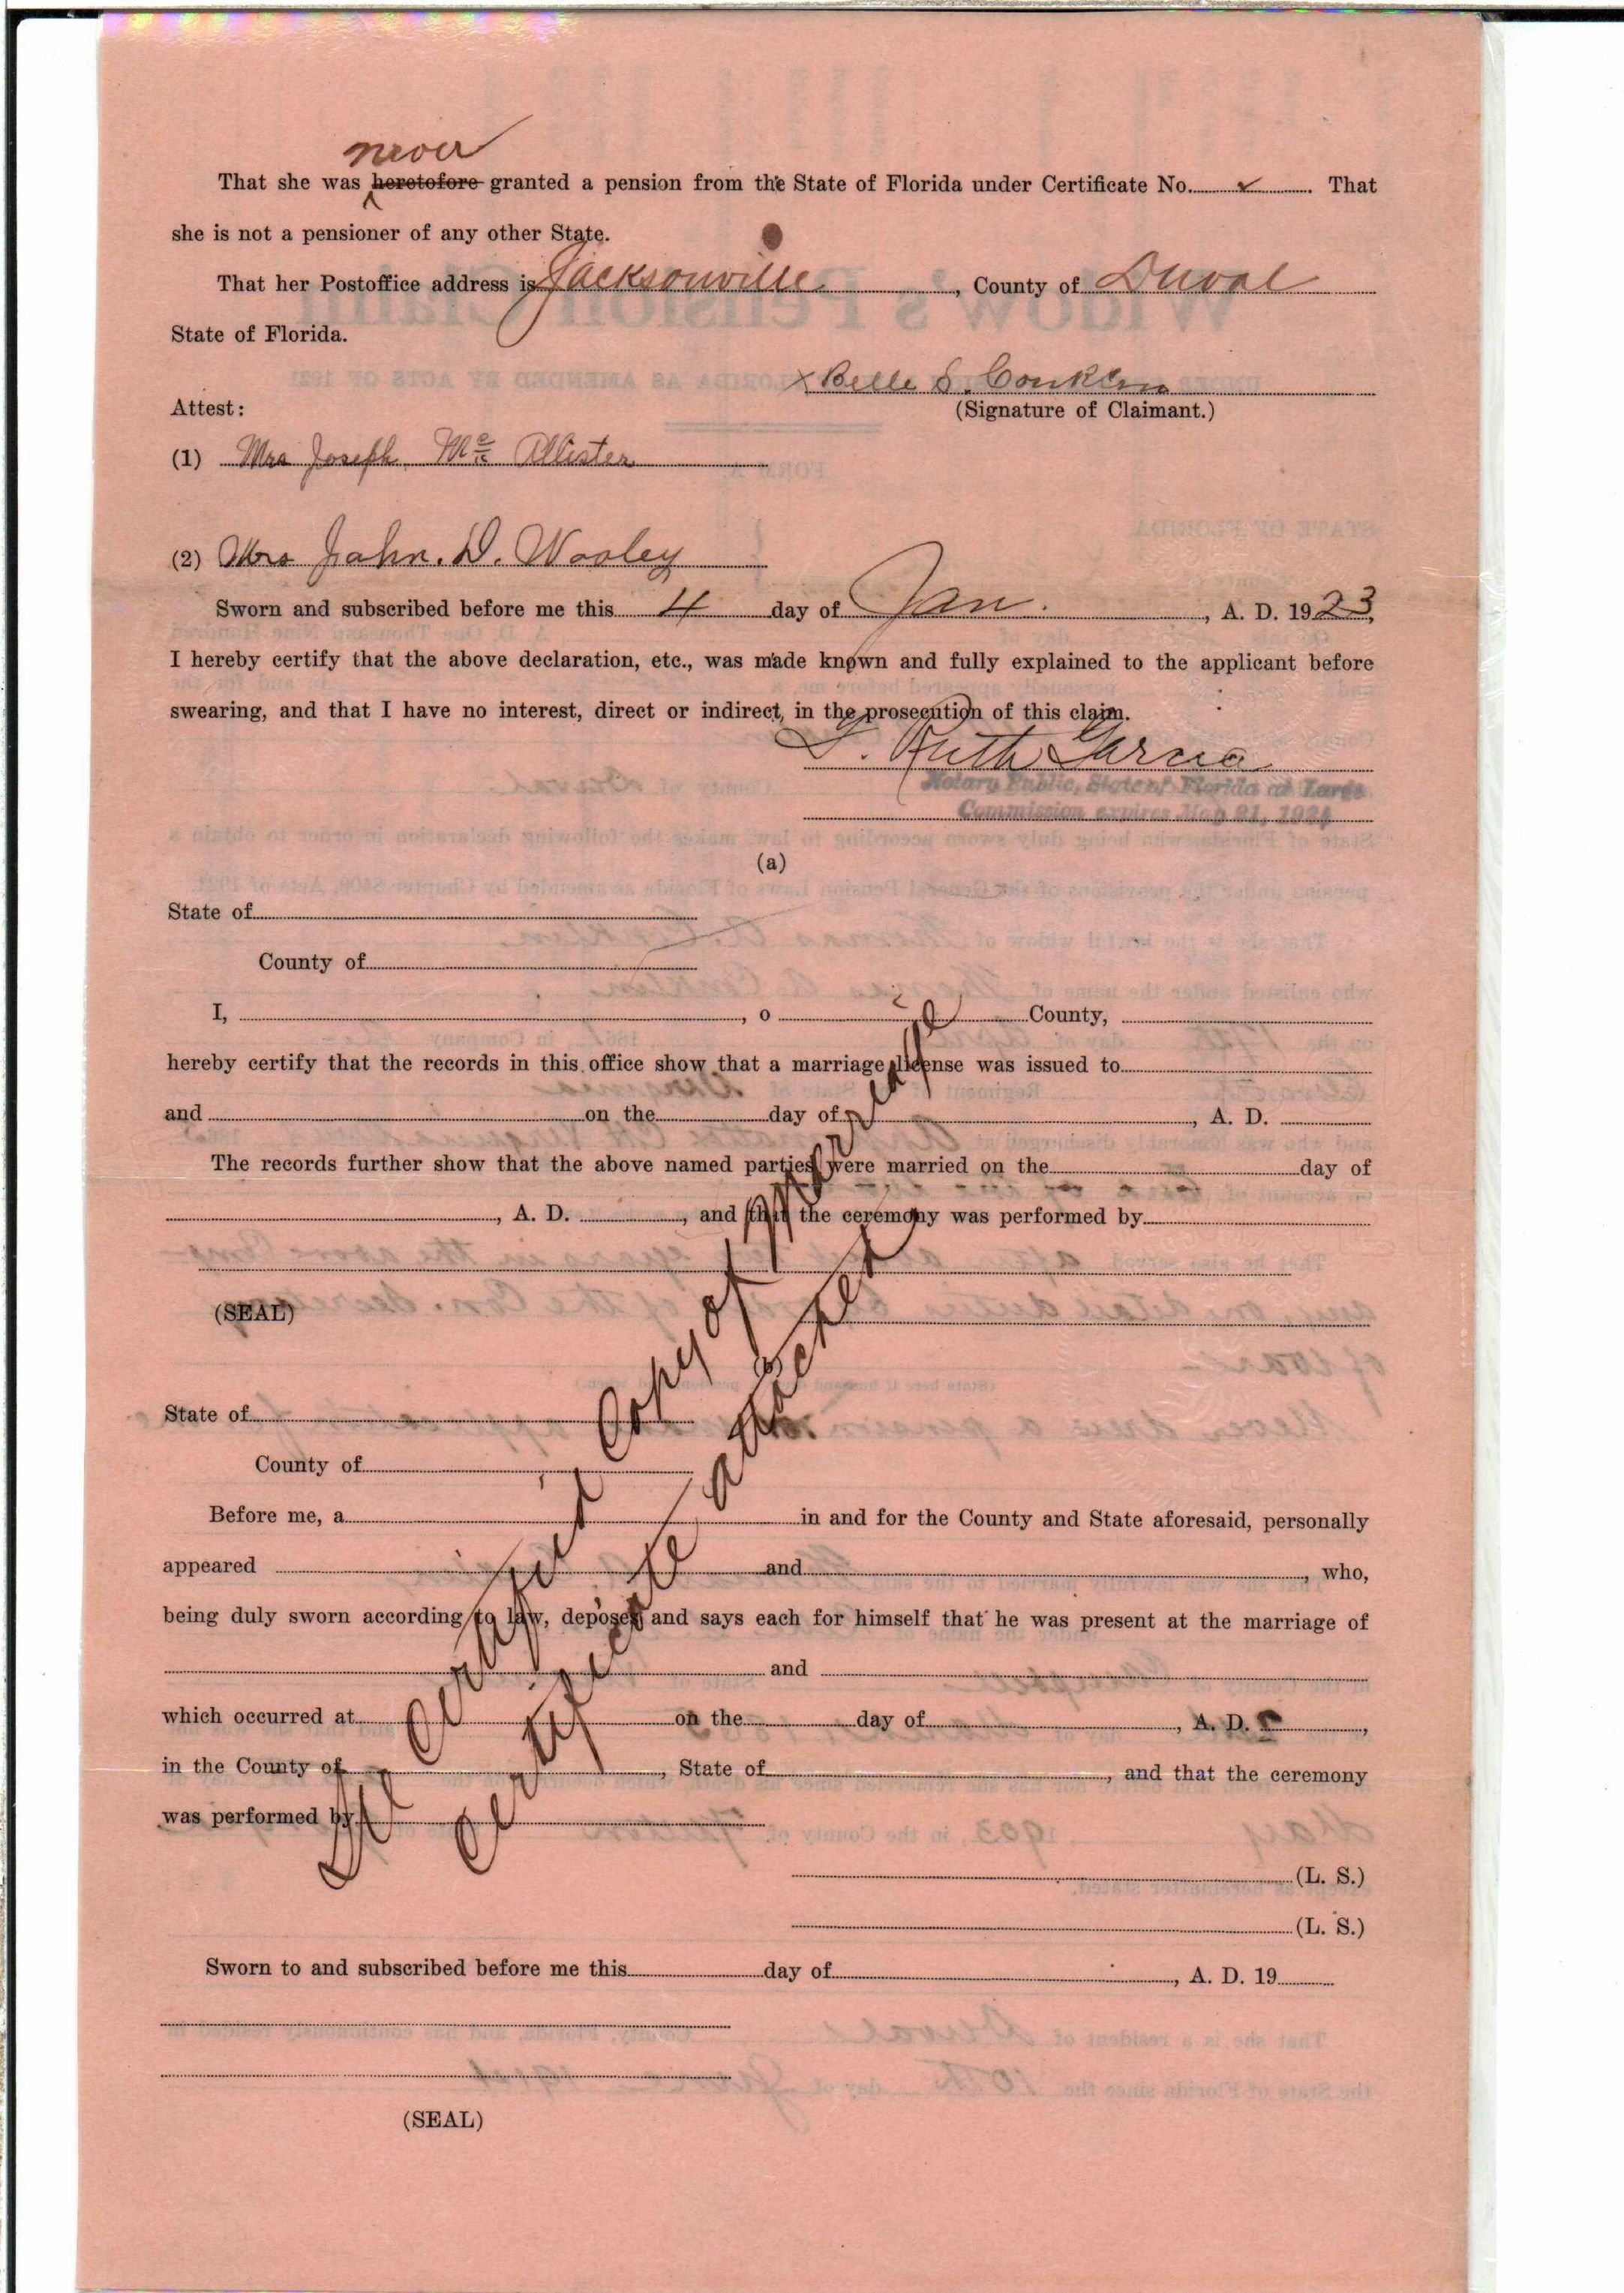 never
That she was heretofore granted a pension from the State of Florida under Certificate No. ✓ . That
she is not a pensioner of any other State.
That her Postoffice address is Jacksonville , County of Duval
State of Florida.
x Belle S. Conklin
Attest: (Signature of Claimant.)
(1) Mrs Joseph Mc Allister
(2) Mrs John. D. Wooley
Sworn and subscribed before me this 4 day of Jan. , A. D. 1923,
I hereby certify that the above declaration, etc., was made known and fully explained to the applicant before
swearing, and that I have no interest, direct or indirect, in the prosecution of this claim.
Ruth Garcia
Notary Public, State of Florida at Large
Commission expires 21, 1924
(a)
State of
County of
I, , o County,
hereby certify that the records in this office show that a marriage license was issued to
and on the day of , A. D.
The records further show that the above named parties were married on the day of
, A. D. , and that the ceremony was performed by
(SEAL)
See Certified Copy of marriage
Certificate attached
State of
County of
Before me, a in and for the County and State aforesaid, personally
appeared and , who,
being duly sworn according to law, deposes and says each for himself that he was present at the marriage of
and
which occurred at on the day of , A. D. ,
in the County of , State of , and that the ceremony
was performed by
(L. S.)
(L. S.)
Sworn to and subscribed before me this day of , A. D. 19
(SEAL)